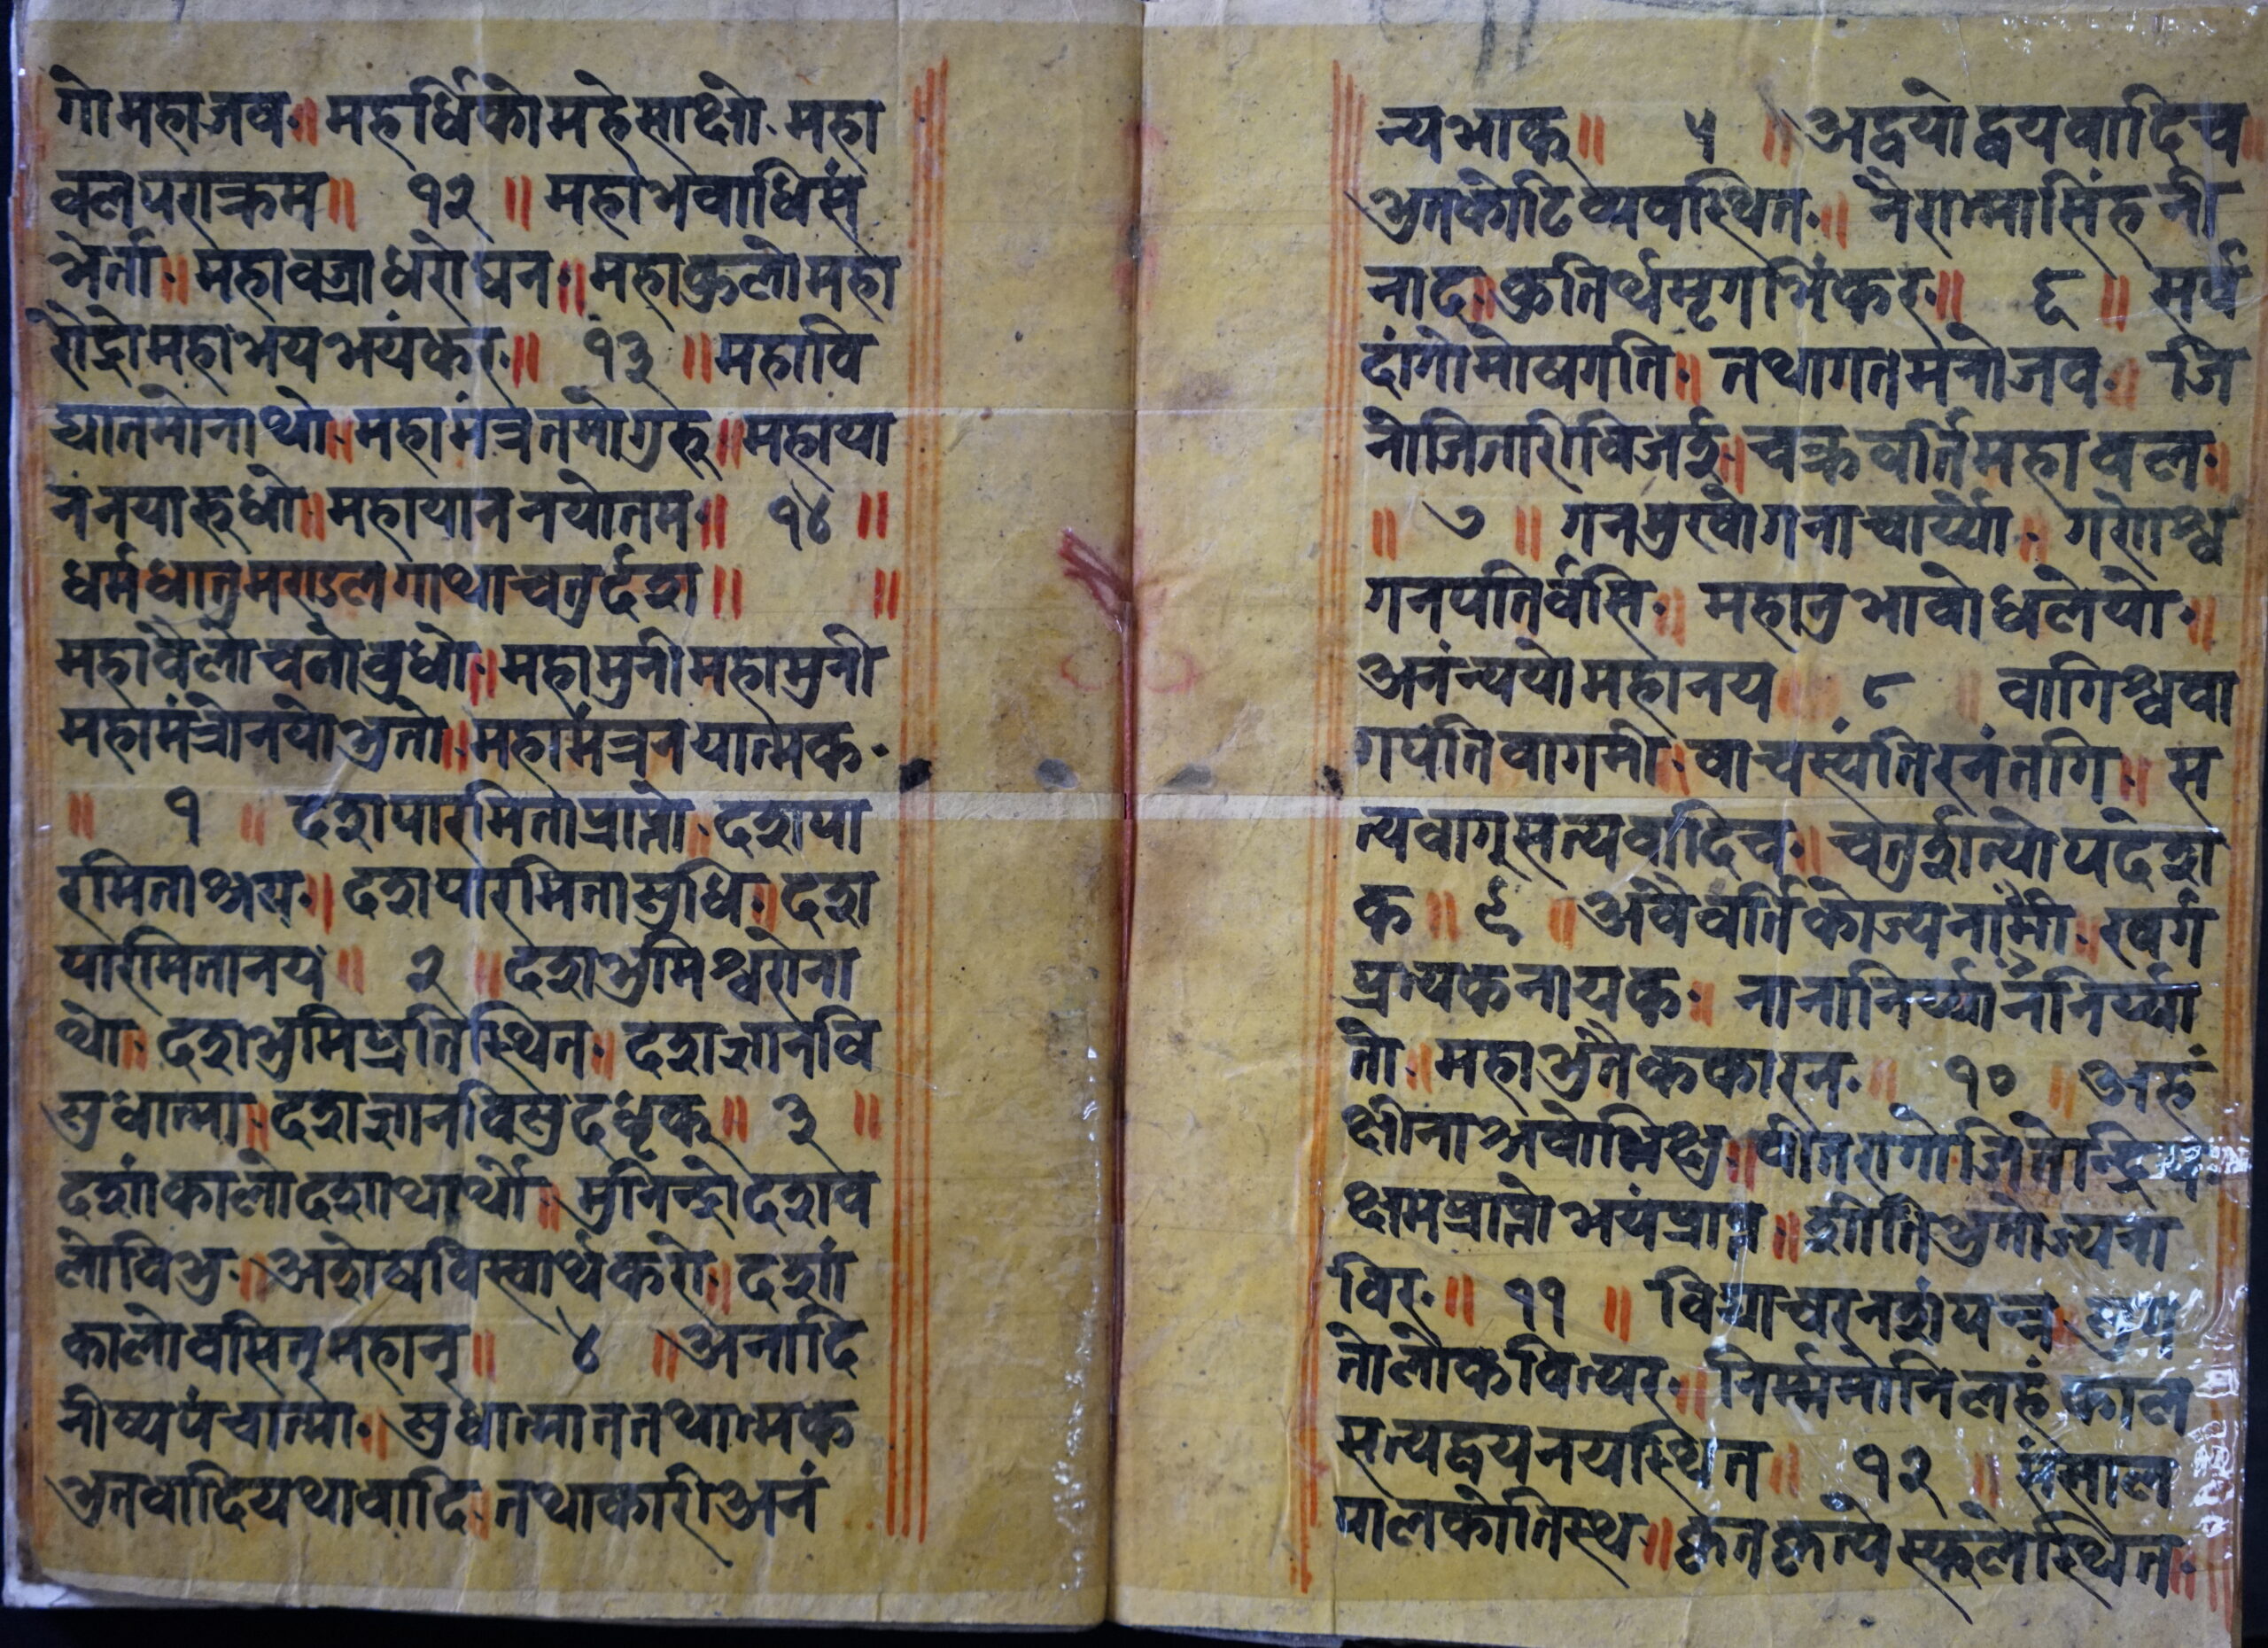 गो महाजव ॥ महर्धिको महेसाक्षो महा
वलपराक्रम ॥ १२ ॥ महाभवाधिसं
भेर्ता ॥ महावज्राधरोघन ॥ महाक्रुलो महा
रोद्रो महाभयभयंकर ॥ १३ ॥ महावि
द्यातमोनाथो ॥ महामंत्रतमोग्रुरु ॥ महाया
नंनयारुधो ॥ महायाननयोतम ॥ १४ ॥
धर्मधातुमराडलगाथाचतुर्दश ॥ ॥
महावैलोचनोवुधो ॥ महामुनीमहामुनी
महामंत्रोनयोभुतो ॥ महामंत्रनयात्मक
॥ १ ॥ दशपारमिताप्राप्तो दशपा
रमिताश्रय ॥ दशपारमितासुधि ॥ दश
पारमितानय ॥ २ ॥ दशभुमिश्वरोना
थो ॥ दशभुमिप्रतिस्थित ॥ दशज्ञानवि
सुधात्मा ॥ दशज्ञानविसुदधृक् ॥ ३ ॥
दशांकालोदशाथार्थो ॥ मुनिन्द्रोदशव
लोविभु ॥ अशेषविस्वार्थकरो ॥ दशां
कालोवसित् महान् ॥ ४ ॥ अनादि
नीष्यपंचात्मा ॥ सुधात्मातत्तथात्मक
भुतवादियथावादि ॥ तथाकारीअनं
न्यभाक् ॥ ५ ॥ अद्वयोद्वयवादिच ॥
भुतकोटिव्यवस्थित ॥ नैरात्मासिंहनी
नाद ॥ क्रुतिर्थमृगभिंकर ॥ ६ ॥ सर्व
दांगोमोघगति ॥ तथागतमनोजव ॥ जि
नोजितारीविजर्इ ॥ चक्रवर्तिमहावल ॥
॥ ७ ॥ गनमुखोगनाचार्य्यो ॥ गरोास्व
गनपतिर्वसि ॥ महानुभावोधलेयो ॥
अनंन्ययोमहानय ८ ॥ वागिश्ववा
गपतिवागमी ॥ वाचस्पंतिरनंतगि ॥ स
त्यवागुसत्यवादिच ॥ चतुर्शत्योपदेश
क ॥ ९ ॥ अवैवर्तिकोज्यनार्मी ॥ खर्ग
प्रत्यकनायक ॥ नानानिर्य्यार्ननिर्य्या
तो ॥ महाभुतैककारन ॥ १० ॥ अहं
क्षीनाअवोभिक्षु ॥ वीतरागोजितेान्द्रिय
क्षामप्राप्तोभयंप्राप्त ॥ शीतिभुतोज्यना
विर ॥ ११ ॥ विद्याचरनशंपन्न
तोलोकवित्पर ॥ निर्म्ममोनिलहंकाल
सत्यद्वयनयस्थित ॥ १२ ॥ संसाल
पालकोतिस्थ ॥ कृतकृत्येस्फुलेस्थित ॥